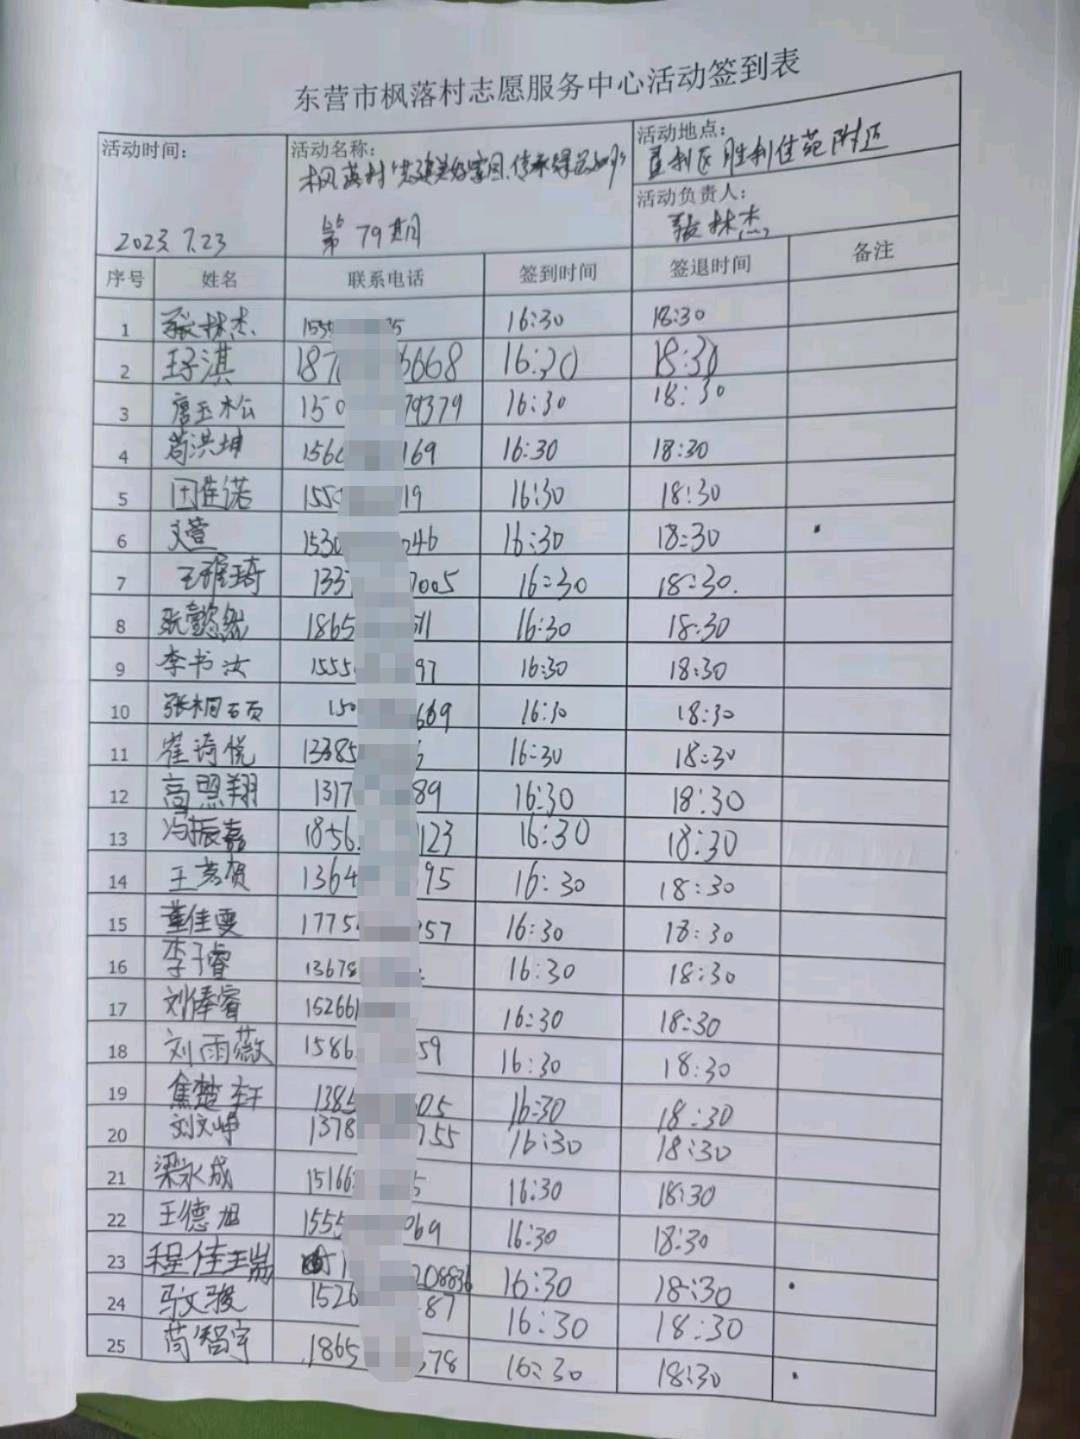 东营市枫落村志愿服务中心活动签到表
活动时间: 2023.7.23
活动名称: 枫落村"共建美好家园、传承
第79期
活动地点: 垦利区胜利佳苑附近
活动负责人: 张林杰
序号 姓名 联系电话 签到时间 签退时间 备注
1 张林杰 155 5 16:30 18:30
2 王子淇 187 6668 16:30 18:30
3 唐玉松 150 79379 16:30 18:30
4 苟洪坤 156 169 16:30 18:30
5 田佳诺 155 19 16:30 18:30
6 文萱 1530 046 16:30 18:30
7 133 7005 16:30 18:30.
8 张懿然 1865 511 16:30 18:30
9 李书汝 1555 97 16:30 18:30
10 张桐硕 150 669 16:30 18:30
11 崔琦悦 13385 16:30 18:30
12 高照翔 1317 89 16:30 18:30
13 冯振嘉 1856 123 16:30 18:30
14 王彦贺 1364 95 16:30 18:30
15 董佳雯 1775 957 16:30 18:30
16 李子睿 13678 16:30 18:30
17 刘俸睿 152661 16:30 18:30
18 刘雨薇 1586 59 16:30 18:30
19 焦楚轩 1385 605 16:30 18:30
20 刘文峥 1378 755 16:30 18:30
21 梁永成 15166 5 16:30 18:30
22 王德旭 1555 069 16:30 18:30
23 程佳 1 208836 16:30 18:30
24 马文骏 1526 87 16:30 18:30
25 苟智宇 1865 578 16:30 18:30